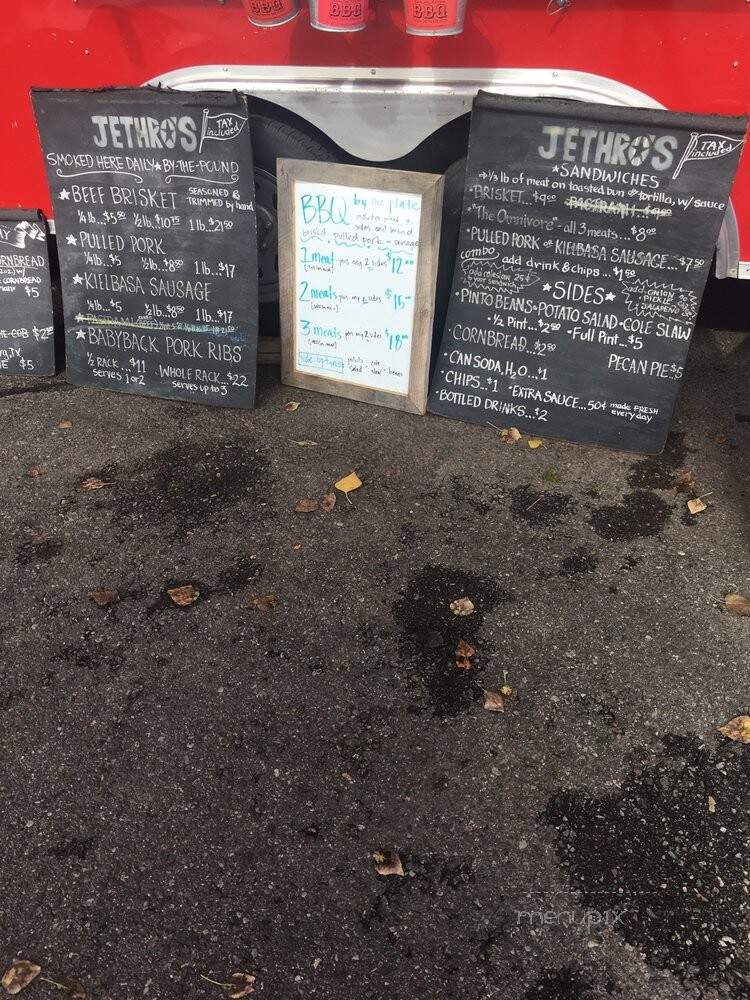 BBQ
BBQ
BBQ
ORNBREAD
$5
$2
$5
JETHRO'S
TAX included
SMOKED HERE DAILY★BY-THE-POUND
★BEEF BRISKET SEASONED & TRIMMED by hand
¼ lb...$5⁵⁰ ½lb..$10⁷⁵ 1 lb..$21⁵⁰
★PULLED PORK
¼lb...$5 ½lb..$8⁵⁰ 1 lb..$17
★KIELBASA SAUSAGE
¼lb...$5 ½lb..$8⁵⁰ 1 lb..$17
★BABYBACK PORK RIBS
½ RACK...$11 WHOLE RACK...$22
serves 1 or 2 serves up to 3
BBQ by the plate
includes meat,
sides and bread
brisket, pulled pork or sausage
1 meat plus any 2 sides $12⁰⁰
2 meats plus any 2 sides $15
3 meats plus any 2 sides $18
Side options: potato salad, cole slaw, beans
JETHRO'S
TAX included
★SANDWICHES
→⅓ lb of meat on toasted bun or tortilla, w/sauce
•BRISKET...$9⁰⁰
•"The Omnivore"-all 3 meats...$8⁰⁰
•PULLED PORK or KIELBASA SAUSAGE...$7⁵⁰
combo add drink & chips...$1⁵⁰
add coleslaw
add ONION, PICKLE, JALAPEÑO
★SIDES★
•PINTO BEANS•POTATO SALAD•COLE SLAW
•½ Pint...$2⁵⁰ •Full Pint...$5
•CORNBREAD...$2⁵⁰ PECAN PIE $5
•CAN SODA, H₂O...$1
•CHIPS...$1 •EXTRA SAUCE...50¢ made FRESH everyday
•BOTTLED DRINKS...$2
menupix